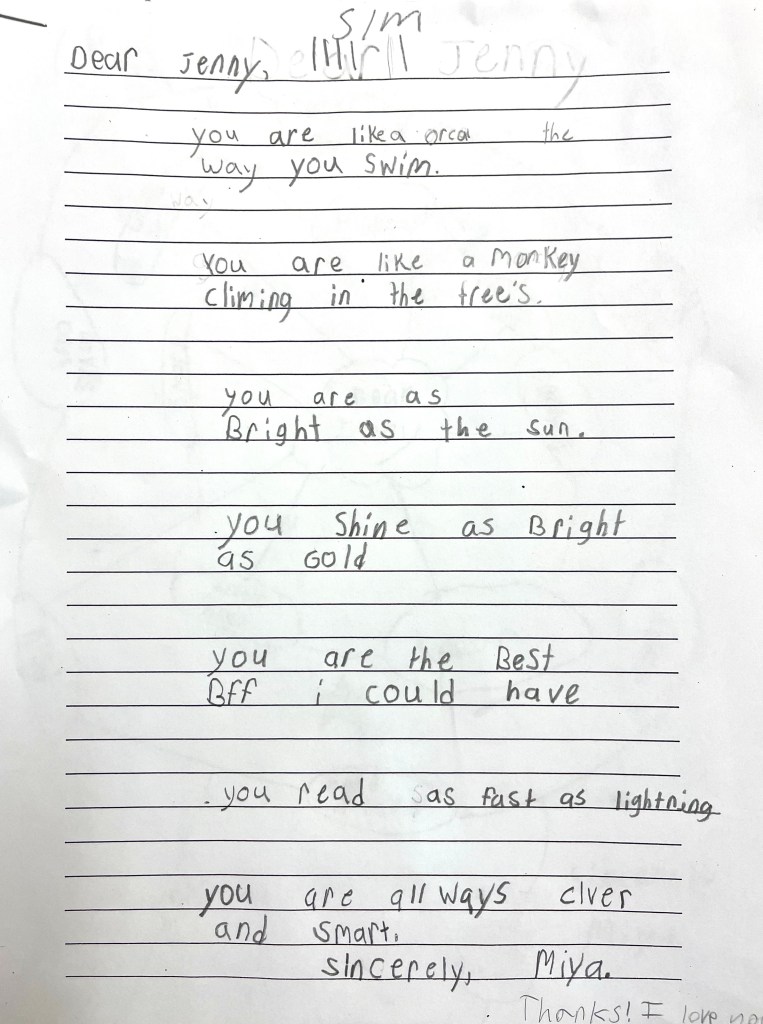 S/M
Dear Jenny,
you are like a orca the
way you swim.
You are like a Monkey
Climing in the tree's.
you are as
Bright as the sun.
you Shine as Bright
as Gold
you are the Best
Bff i could have
you read as fast as lightning
you are all ways clver
and smart.
sincerely, Miya.
Thanks! I love